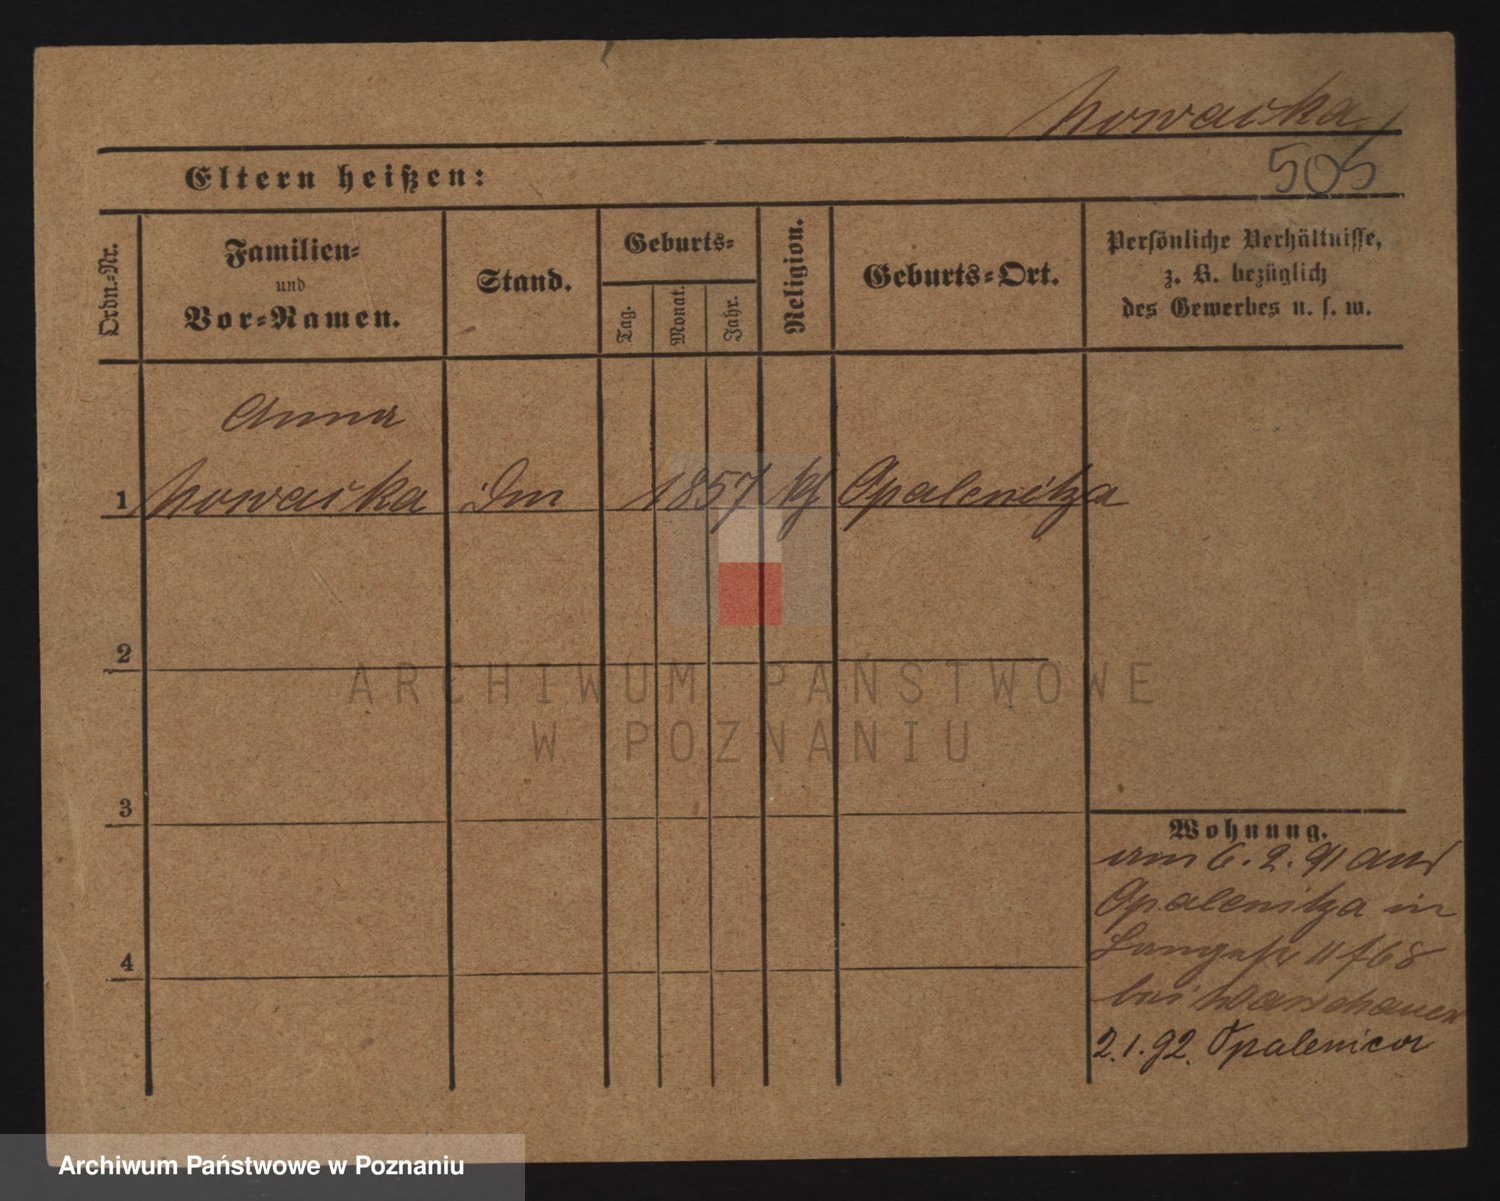 Nowacka
505
Eltern heißen:
Ordn.-Nr.
Familien-
und
Vor-Namen.
Stand.
Geburts-
Tag.
Monat.
Jahr.
Religion.
Geburts-Ort.
Persönliche Verhältnisse,
z. B. bezüglich
des Gewerbes u. s. w.
Anna
1 Nowacka 1857 Opalenitza
2
3
4
ARCHIWUM PAŃSTWOWE
W POZNANIU
Wohnung.
am 6. 2. 91 aus
Opalenitza in
Langestr 11
bei Warschauer
2.1.92. Opalenica
Archiwum Państwowe w Poznaniu